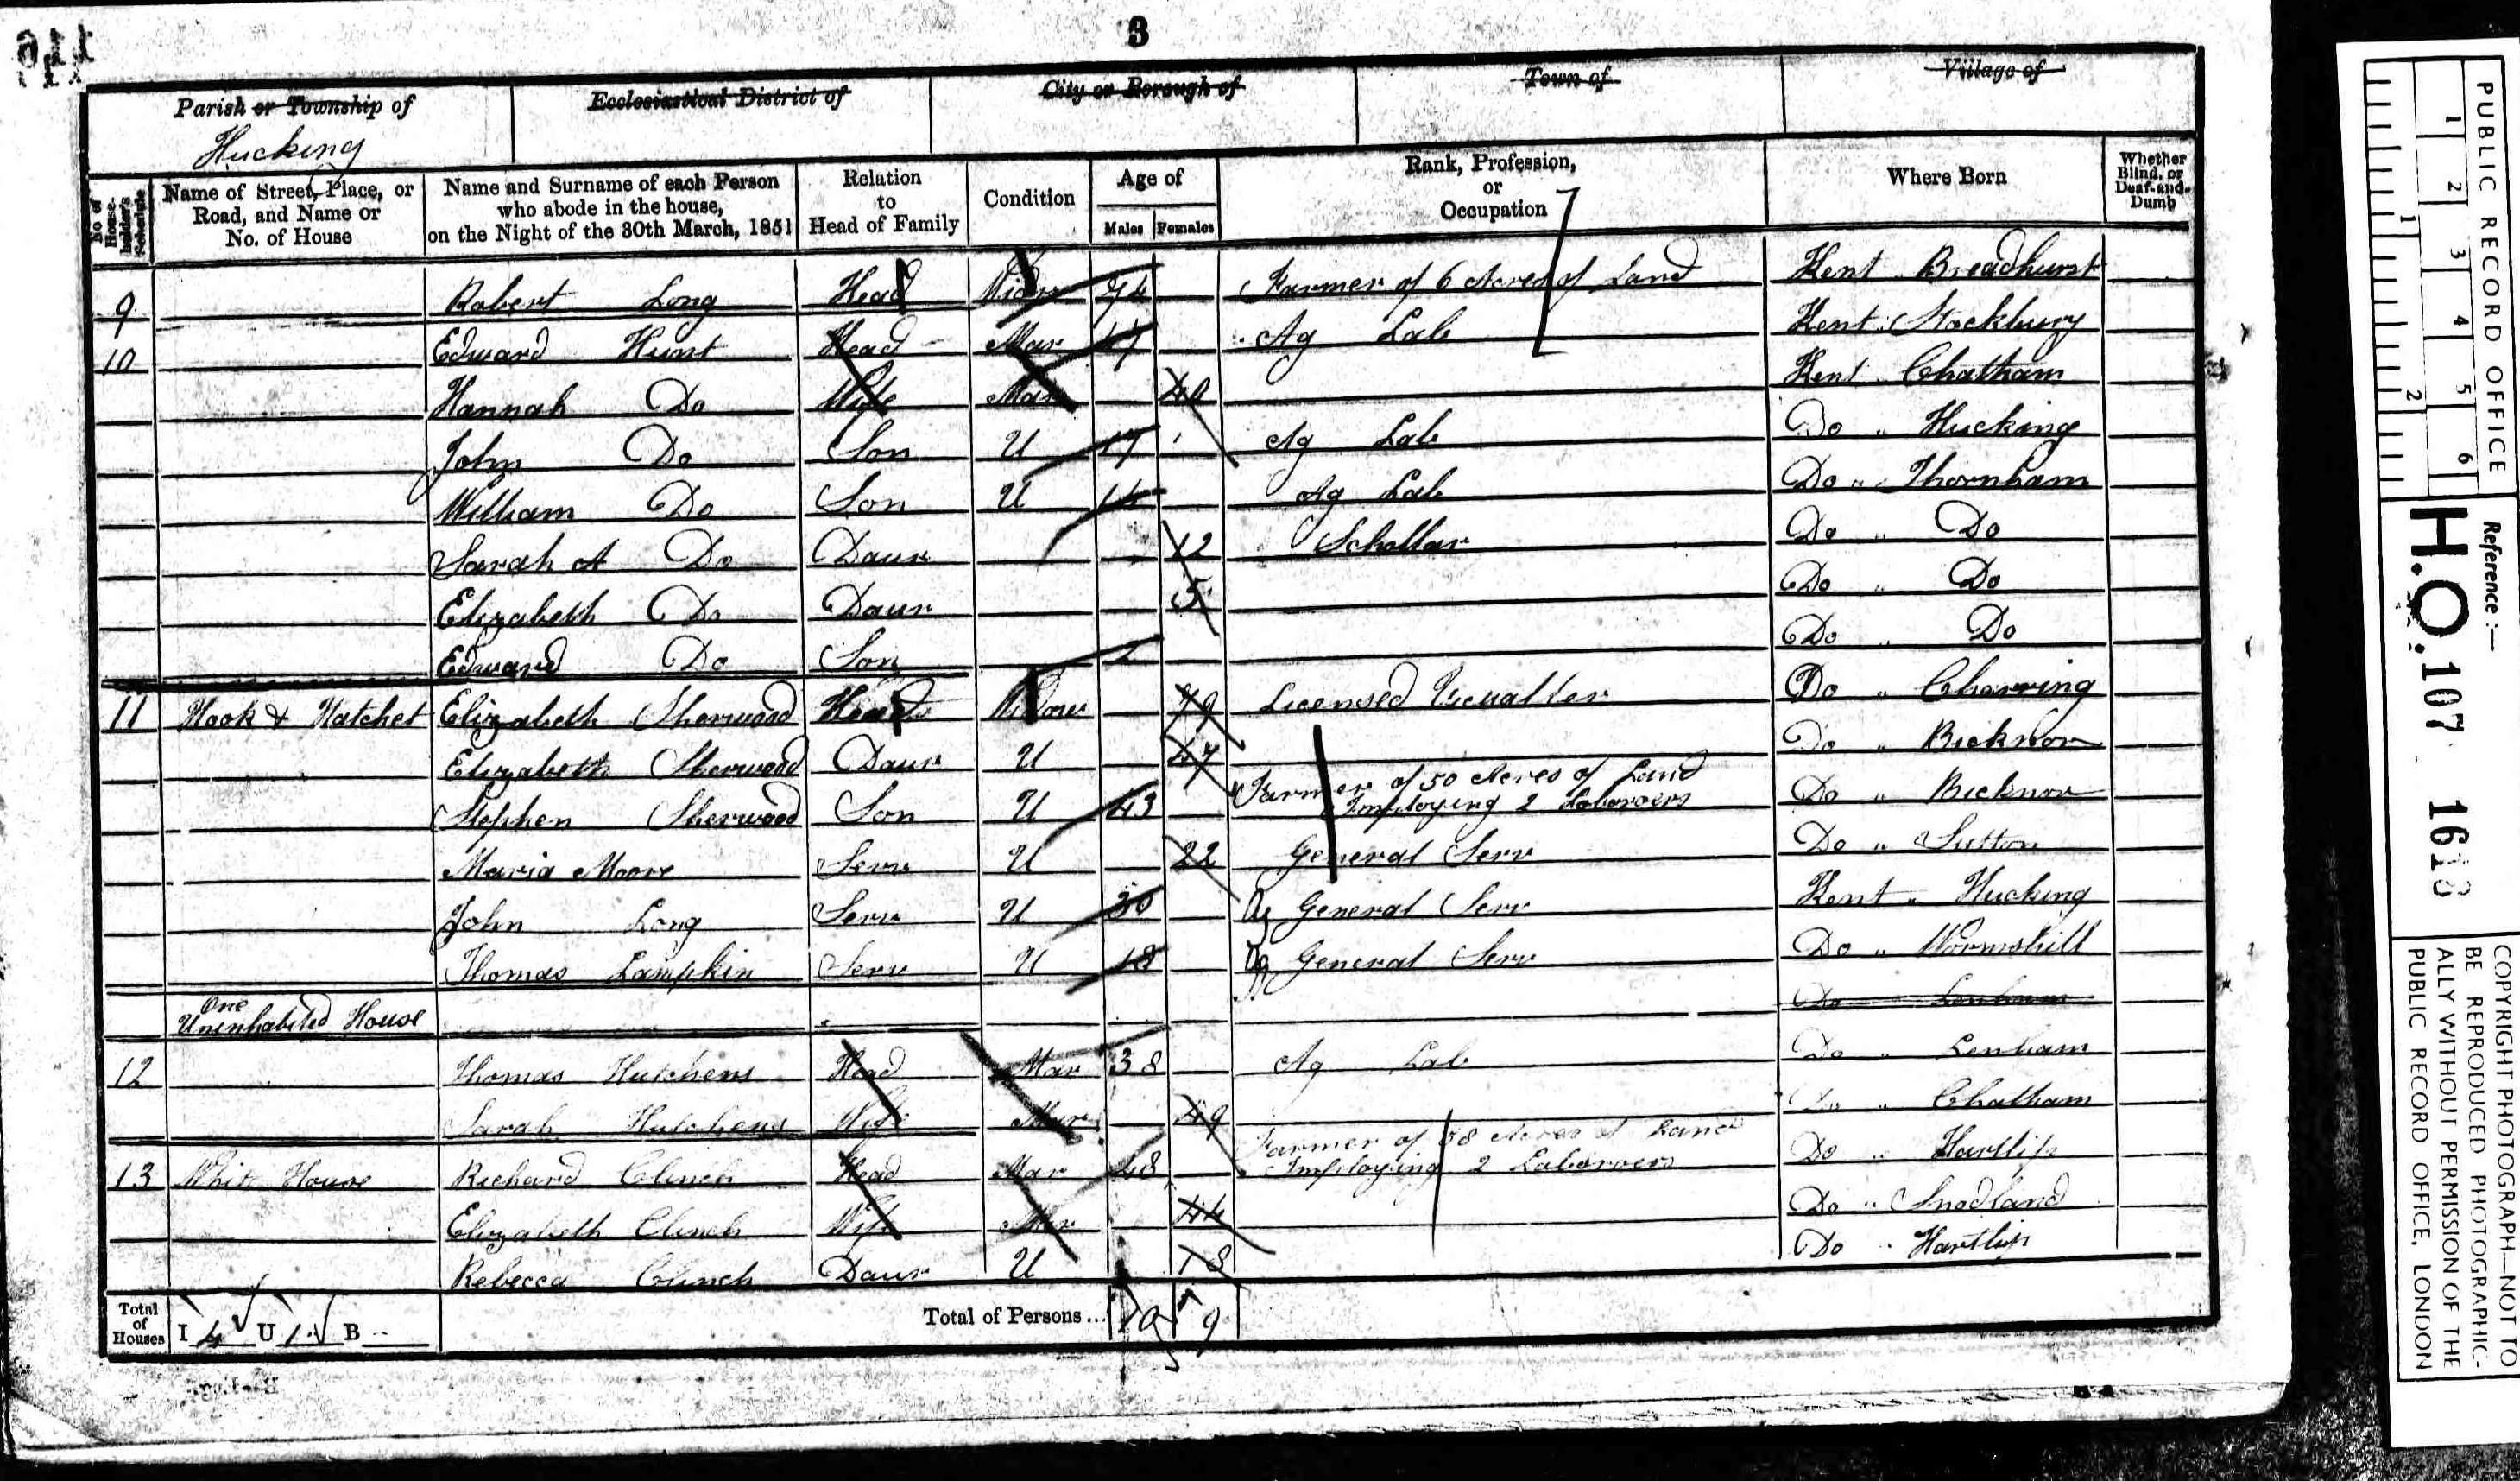 3
Parish or Township of
Hucking
Ecclesiastical District of
City or Borough of
Town of
Village of
No. of House-holder's Schedule
Name of Street, Place, or Road, and Name or No. of House
Name and Surname of each Person who abode in the house, on the Night of the 30th March, 1851
Relation to Head of Family
Condition
Age of
Males Females
Rank, Profession, or Occupation
Where Born
Whether Blind, or Deaf-and-Dumb
9 Robert Long Head Widr 74 Farmer of 6 Acres of Land Kent Bredhurst
10 Edward Hunt Head Mar Ag Lab Kent Stockbury
Hannah Do Wife Mar 40 Kent Chatham
John Do Son U 17 Ag Lab Do " Hucking
William Do Son U 14 Ag Lab Do " Thornham
Sarah A Do Daur 12 Schollar Do " Do
Elizabeth Do Daur 5 Do " Do
Edward Do Son 2 Do " Do
11 Hook & Hatchet Elizabeth Sherwood Head Widow 79 Licensed Victualler Do " Charring
Elizabeth Sherwood Daur U 47 Do " Bicknor
Stephen Sherwood Son U 43 Farmer of 50 Acres of Land Employing 2 Laborers Do " Bicknor
Maria Moore Serv U 22 General Serv Do " Sutton
John Long Serv U 30 Ag General Serv Kent " Hucking
Thomas Lampkin Serv U 18 Ag General Serv Do " Wormshill
One Uninhabited House Do Lenham
12 Thomas Hutchens Head Mar 38 Ag Lab Do " Lenham
Sarah Hutchens Wife Mar 49 Do " Chatham
13 White House Richard Clinch Head Mar 48 Farmer of 58 Acres of Land Employing 2 Laborers Do " Hartlip
Elizabeth Clinch Wife Mar 44 Do " Snodland
Rebecca Clinch Daur U 18 Do " Hartlip
Total of Houses I 4 U 1 B
Total of Persons... 10 9
PUBLIC RECORD OFFICE
1 2 3 4 5 6
1 2
Reference :—
H.O. 107 1618
COPYRIGHT PHOTOGRAPH—NOT TO
BE REPRODUCED PHOTOGRAPHIC-
ALLY WITHOUT PERMISSION OF THE
PUBLIC RECORD OFFICE, LONDON